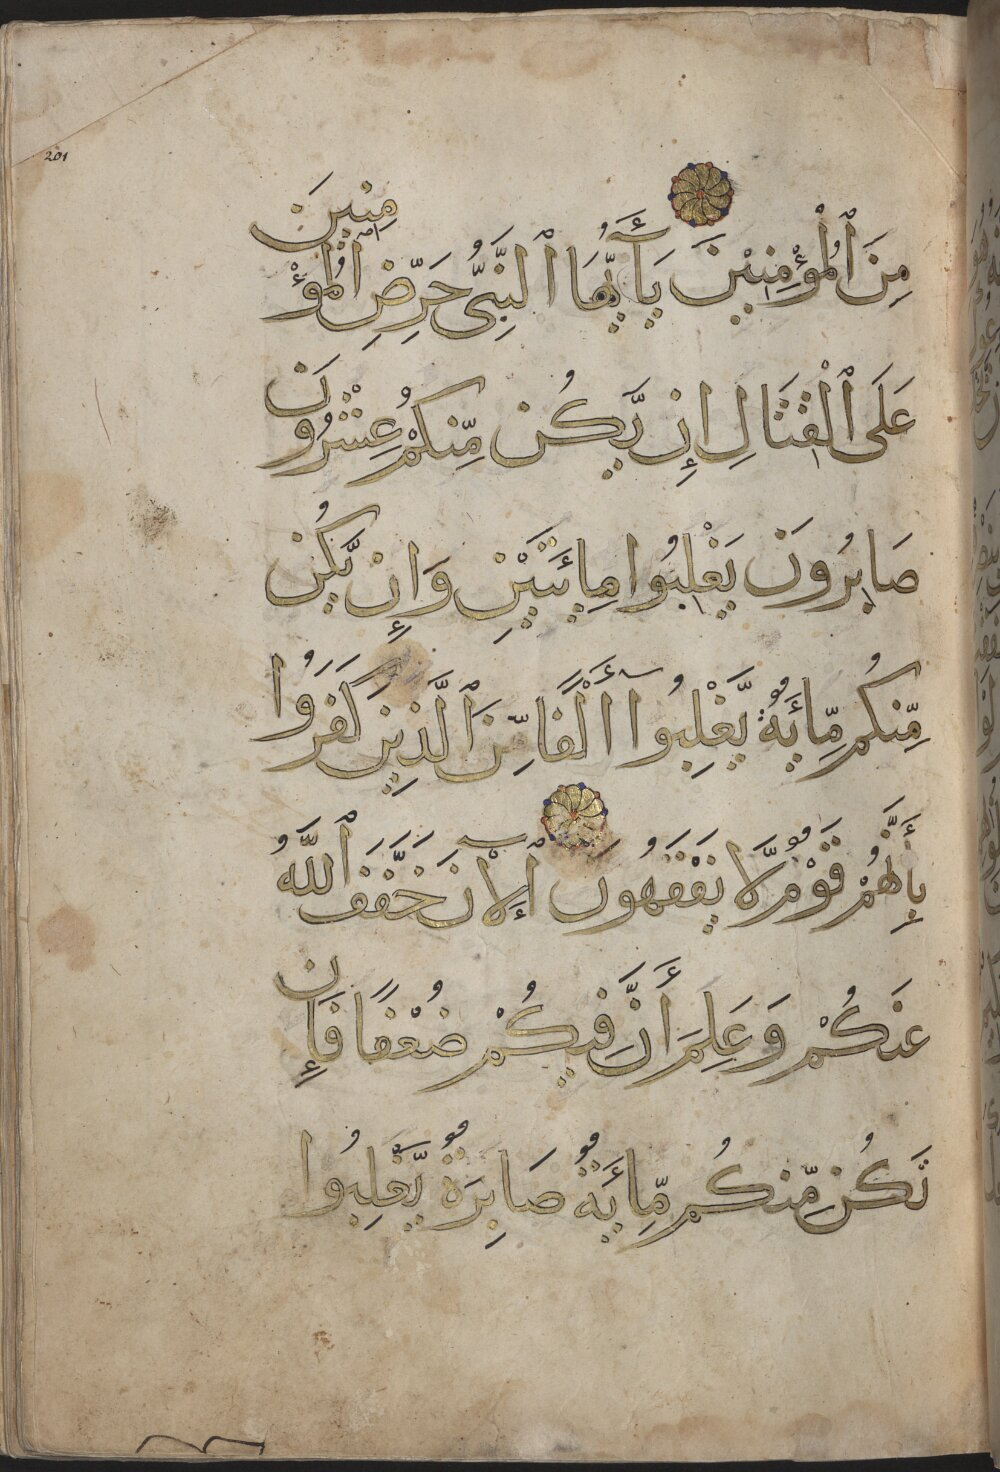 201
مِنَ ٱلْمُؤْمِنِيْنَ يَآ أَيُّهَا ٱلنَّبِىُّ حَرِّضِ ٱلْمُؤْمِنِينَ
عَلَى ٱلْقِتَالِ إِن يَّكُن مِّنكُمْ عِشْرُونَ
صَابِرُونَ يَغْلِبُوا مِائَتَيْنِ وَإِن يَّكُن
مِّنكُم مِّائَةٌ يَّغْلِبُوآ أَلْفًا مِّنَ ٱلَّذِينَ كَفَرُوا
بِأَنَّهُمْ قَوْمٌ لَّا يَفْقَهُونَ ٱلْآنَ خَفَّفَ ٱللَّهُ
عَنكُمْ وَعَلِمَ أَنَّ فِيكُمْ ضُعْفًا فَإِن
تَكُن مِّنكُم مِّائَةٌ صَابِرَةٌ يَّغْلِبُوا